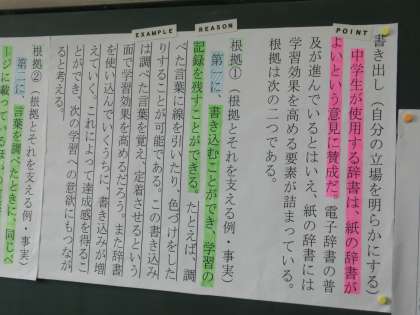 POINT
REASON
EXAMPLE
書き出し(自分の立場を明らかにする)
中学生が使用する辞書は、紙の辞書が
よいという意見に賛成だ。電子辞書の普
及が進んでいるとはいえ、紙の辞書には
学習効果を高める要素が詰まっている。
根拠は次の二つである。
根拠①(根拠とそれを支える例・事実)
第一に、書き込むことができ、学習の
記録を残すことができる。たとえば、調
べた言葉に線を引いたり、色づけをした
りすることが可能である。この書き込み
は調べた言葉を覚え、定着させるという
面で学習効果を高めるだろう。また辞書
を使い込んでいくうちに、書き込みが増
えていく。これによって達成感を得るこ
とができ、次の学習への意欲にもつなが
ると考える。
根拠②(根拠とそれを支える例・事実)
第二に、言葉を調べたときに、同じペ
ージに載っている